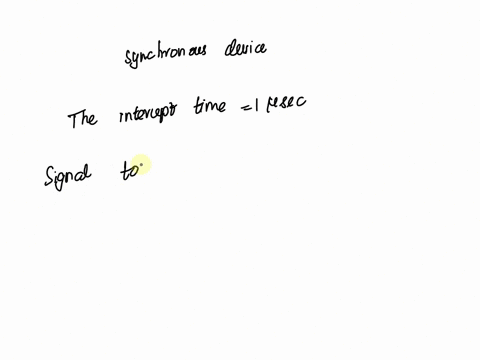 synchronous device
The intercept time = 1 μsec
Signal to